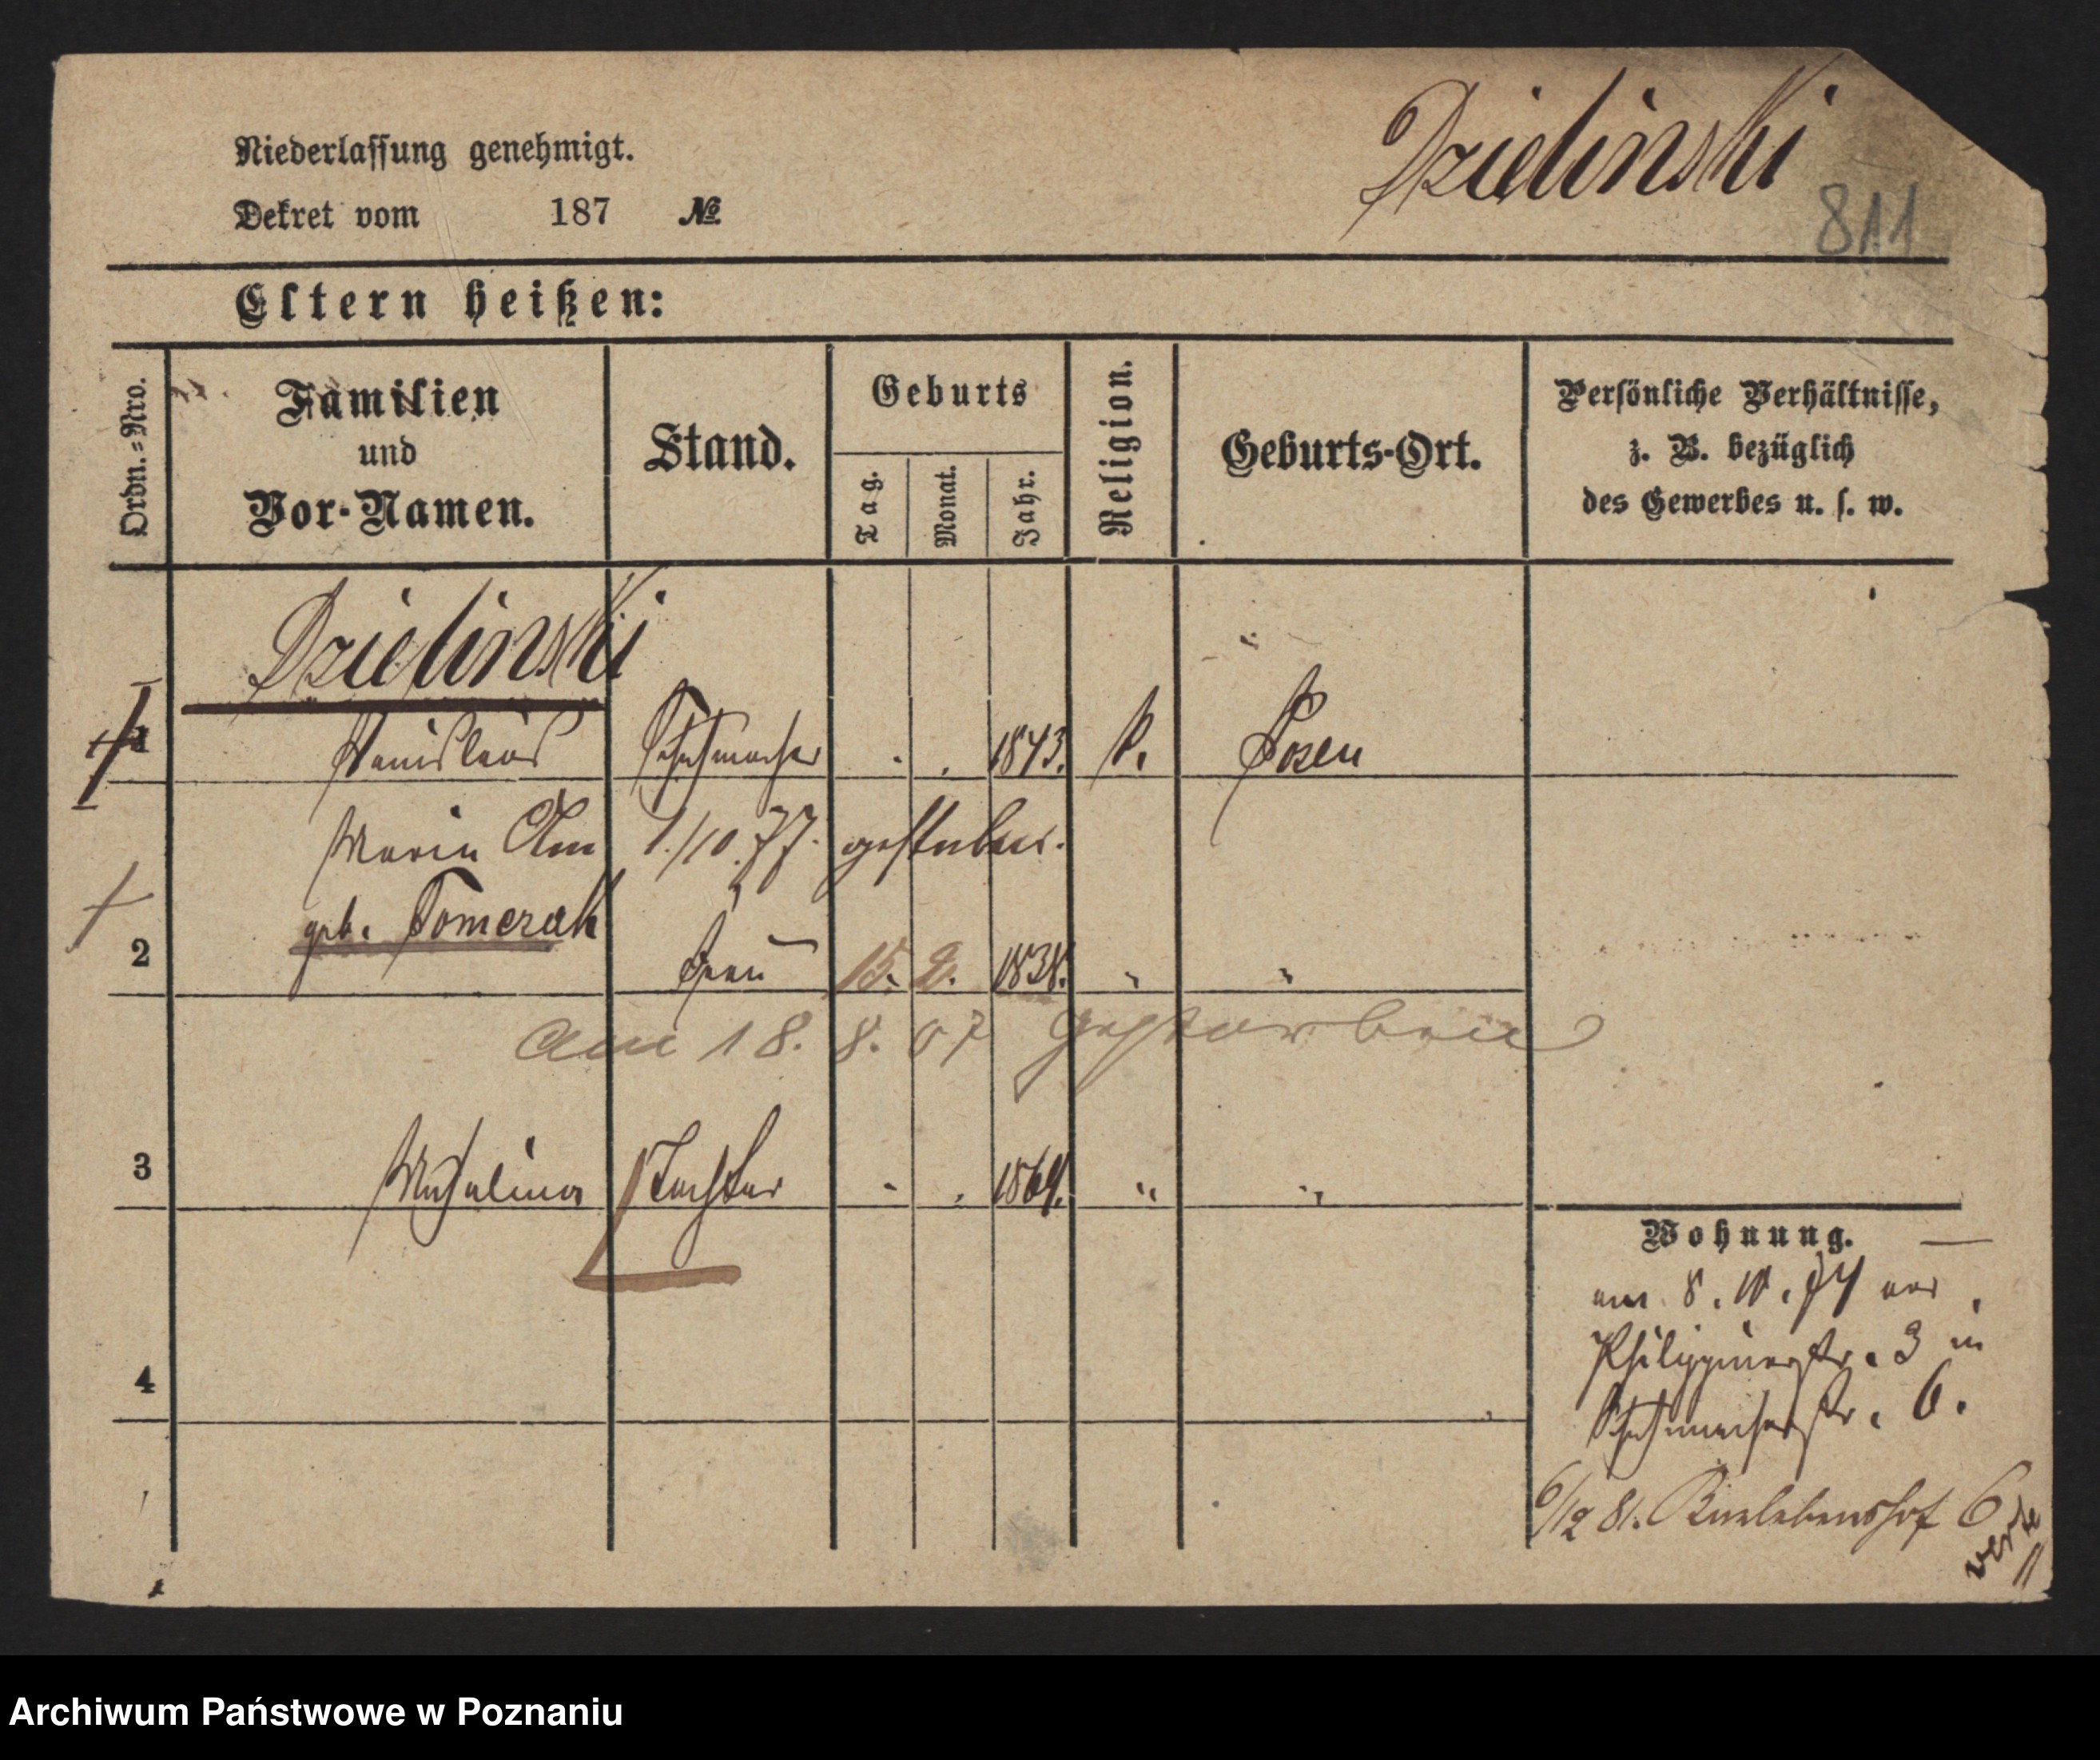 Niederlassung genehmigt.
Dekret vom 187 №
Dzielinski
811
Eltern heißen:
Ordn.=Nro.
Familien
und
Vor-Namen.
Stand.
Geburts
Tag.
Monat.
Jahr.
Religion.
Geburts-Ort.
Persönliche Verhältnisse,
z. B. bezüglich
des Gewerbes u. s. w.
Dzielinski
1 Stanislaus Schuhmacher 1843. k. Posen
Maria 1./10.77. gestorben.
geb. Pomerah
2 Frau 15. 2. 1838. " "
am 18. 8. 07 gestorben
3 Michalina Tochter 1869. " "
Wohnung.
am 8. 10. 74 aus
Philippinerstr. 3 in
Schuhmacherstr. 6.
6/12 81. 6
verte
4
Archiwum Państwowe w Poznaniu